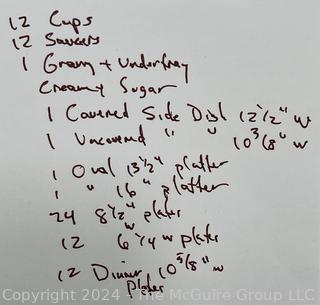 12 Cups
12 Saucers
1 Gravy + Undertray
Creamy Sugar
1 Covered Side Dish 12 1/2" w
1 Uncovered " " 10 3/8" w
1 Oval 13 1/2" platter
1 " 16" platter
24 8 1/2" plates
12 6 1/4 w plates
12 Dinner 10 5/8" w
plates
Copyright 2024 - The McGuire Group LLC